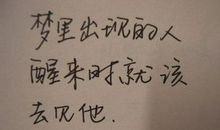 梦里出现的人
醒来时就该
去见他.